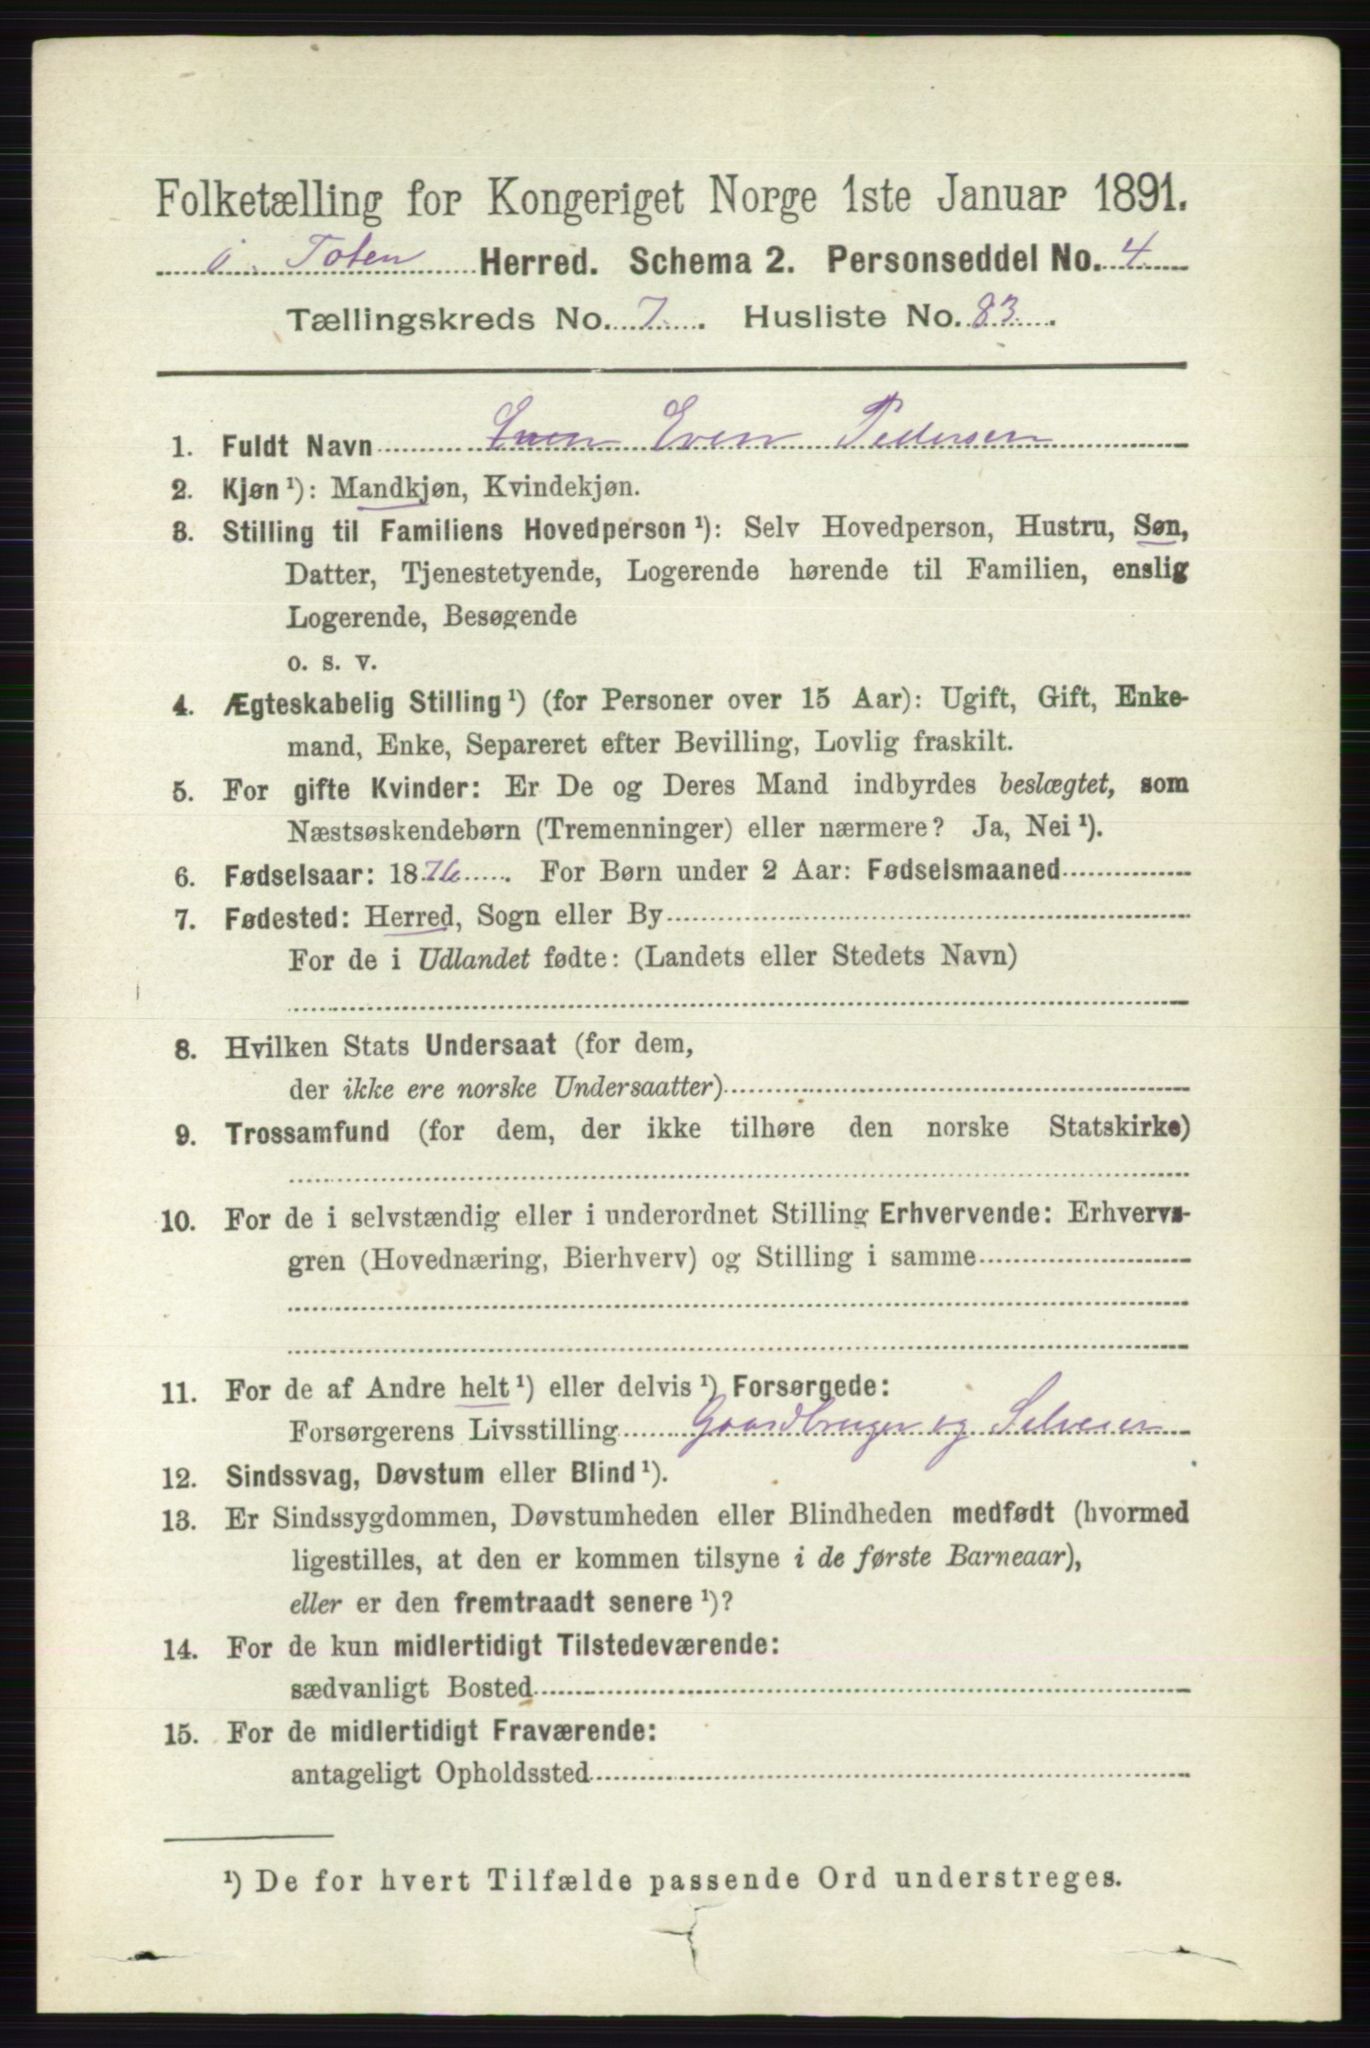 Folketælling for Kongeriget Norge 1ste Januar 1891.
Ö. Toten Herred. Schema 2. Personseddel No. 4
Tællingskreds No. 7. Husliste No. 83.
1. Fuldt Navn Even Even Pedersen
2. Kjøn ¹): Mandkjøn, Kvindekjøn.
3. Stilling til Familiens Hovedperson ¹): Selv Hovedperson, Hustru, Søn,
Datter, Tjenestetyende, Logerende hørende til Familien, enslig
Logerende, Besøgende
o. s. v.
4. Ægteskabelig Stilling ¹) (for Personer over 15 Aar): Ugift, Gift, Enke-
mand, Enke, Separeret efter Bevilling, Lovlig fraskilt.
5. For gifte Kvinder: Er De og Deres Mand indbyrdes beslægtet, som
Næstsøskendebørn (Tremenninger) eller nærmere? Ja, Nei ¹).
6. Fødselsaar: 1876. For Børn under 2 Aar: Fødselsmaaned
7. Fødested: Herred, Sogn eller By
For de i Udlandet fødte: (Landets eller Stedets Navn)
8. Hvilken Stats Undersaat (for dem,
der ikke ere norske Undersaatter)
9. Trossamfund (for dem, der ikke tilhøre den norske Statskirke)
10. For de i selvstændig eller i underordnet Stilling Erhvervende: Erhvervs-
gren (Hovednæring, Bierhverv) og Stilling i samme
11. For de af Andre helt ¹) eller delvis ¹) Forsørgede:
Forsørgerens Livsstilling Gaardbruger og Selveier
12. Sindssvag, Døvstum eller Blind ¹).
13. Er Sindssygdommen, Døvstumheden eller Blindheden medfødt (hvormed
ligestilles, at den er kommen tilsyne i de første Barneaar),
eller er den fremtraadt senere ¹)?
14. For de kun midlertidigt Tilstedeværende:
sædvanligt Bosted
15. For de midlertidigt Fraværende:
antageligt Opholdssted
¹) De for hvert Tilfælde passende Ord understreges.